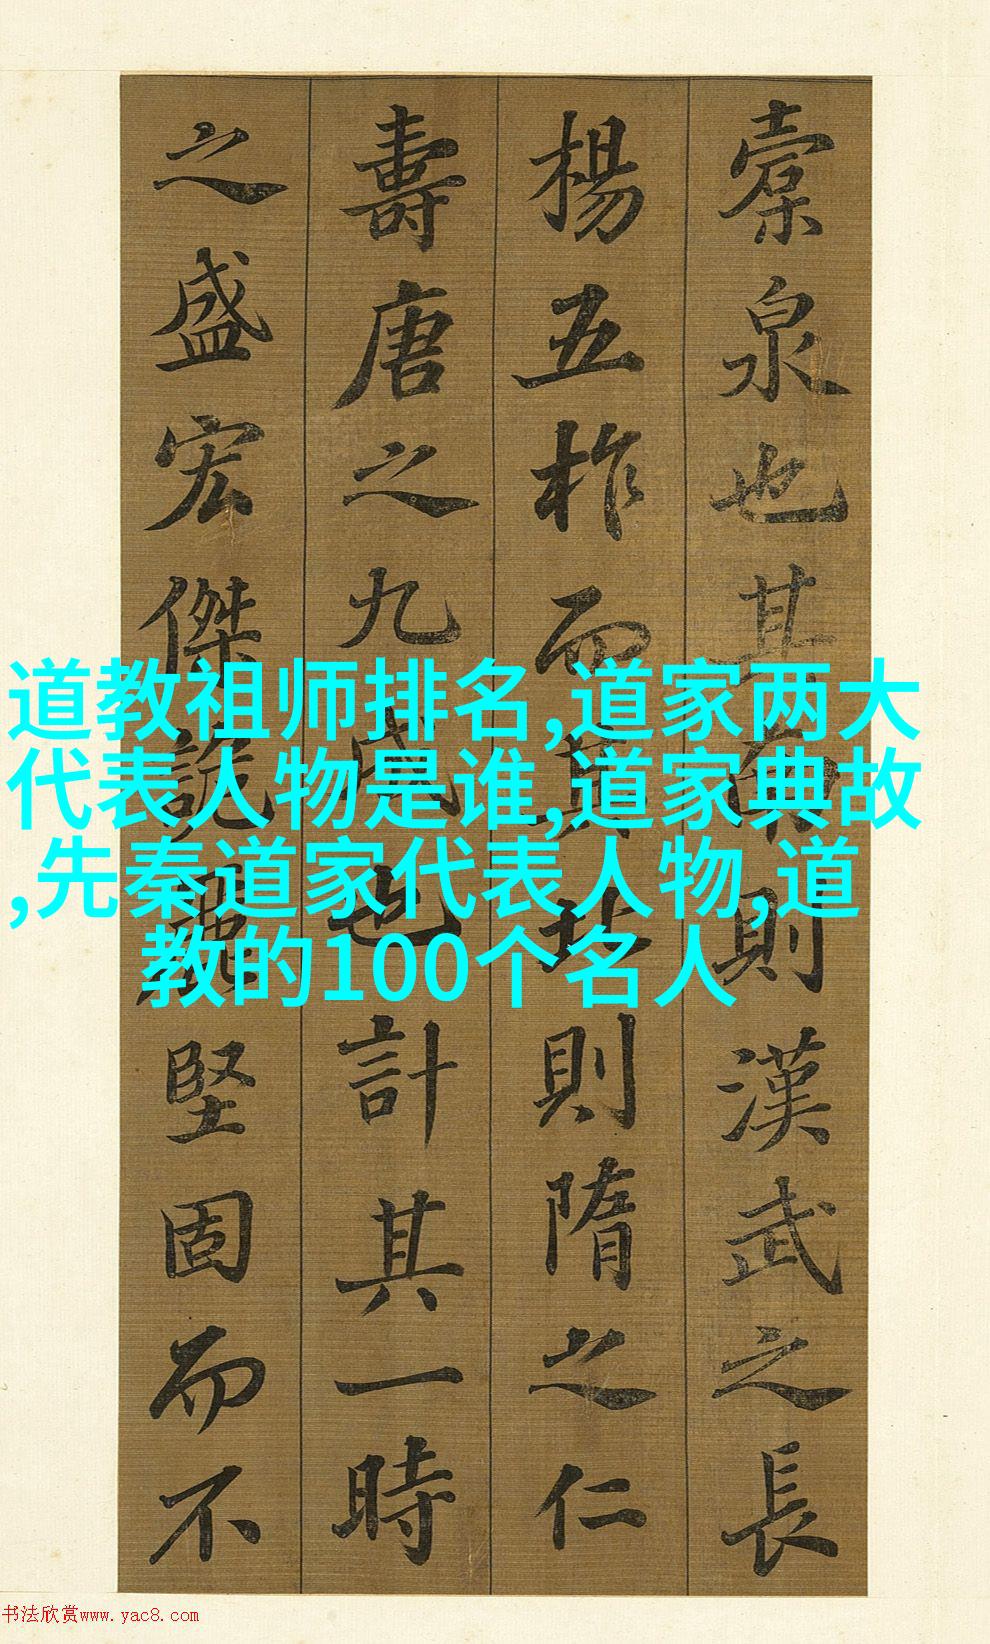 橐泉也其南則漢武之長
楊五柞而其北則隋之仁
壽唐之九成也計其一時
之盛宏傑詭麗堅固而不
道教祖师排名,道家两大
代表人物是谁,道家典故
,先秦道家代表人物,道
教的100个名人
书法欣赏www.yac8.com